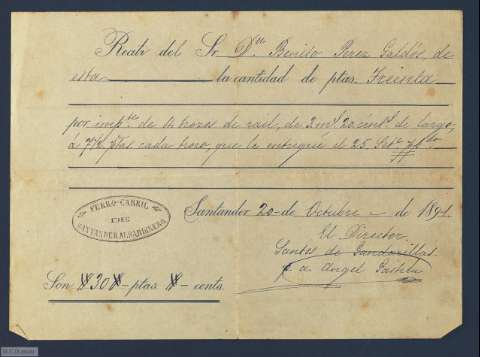 Recibí del Sr. Dn. Benito Perez Galdós, de
esta la cantidad de ptas. Treinta
por impte. de 4 trozos de rail, de 2 mts. 20 cents. de largo,
á 7½ ptas cada trozo, que le entregué el 25 Sete.
FERRO-CARRIL
DE
SANTANDER AL SARDINERO
Santander 20 de Octubre de 1891.
El Director
Santos de Gandarillas
p. a. Angel
Son #30#- ptas. #- cents.